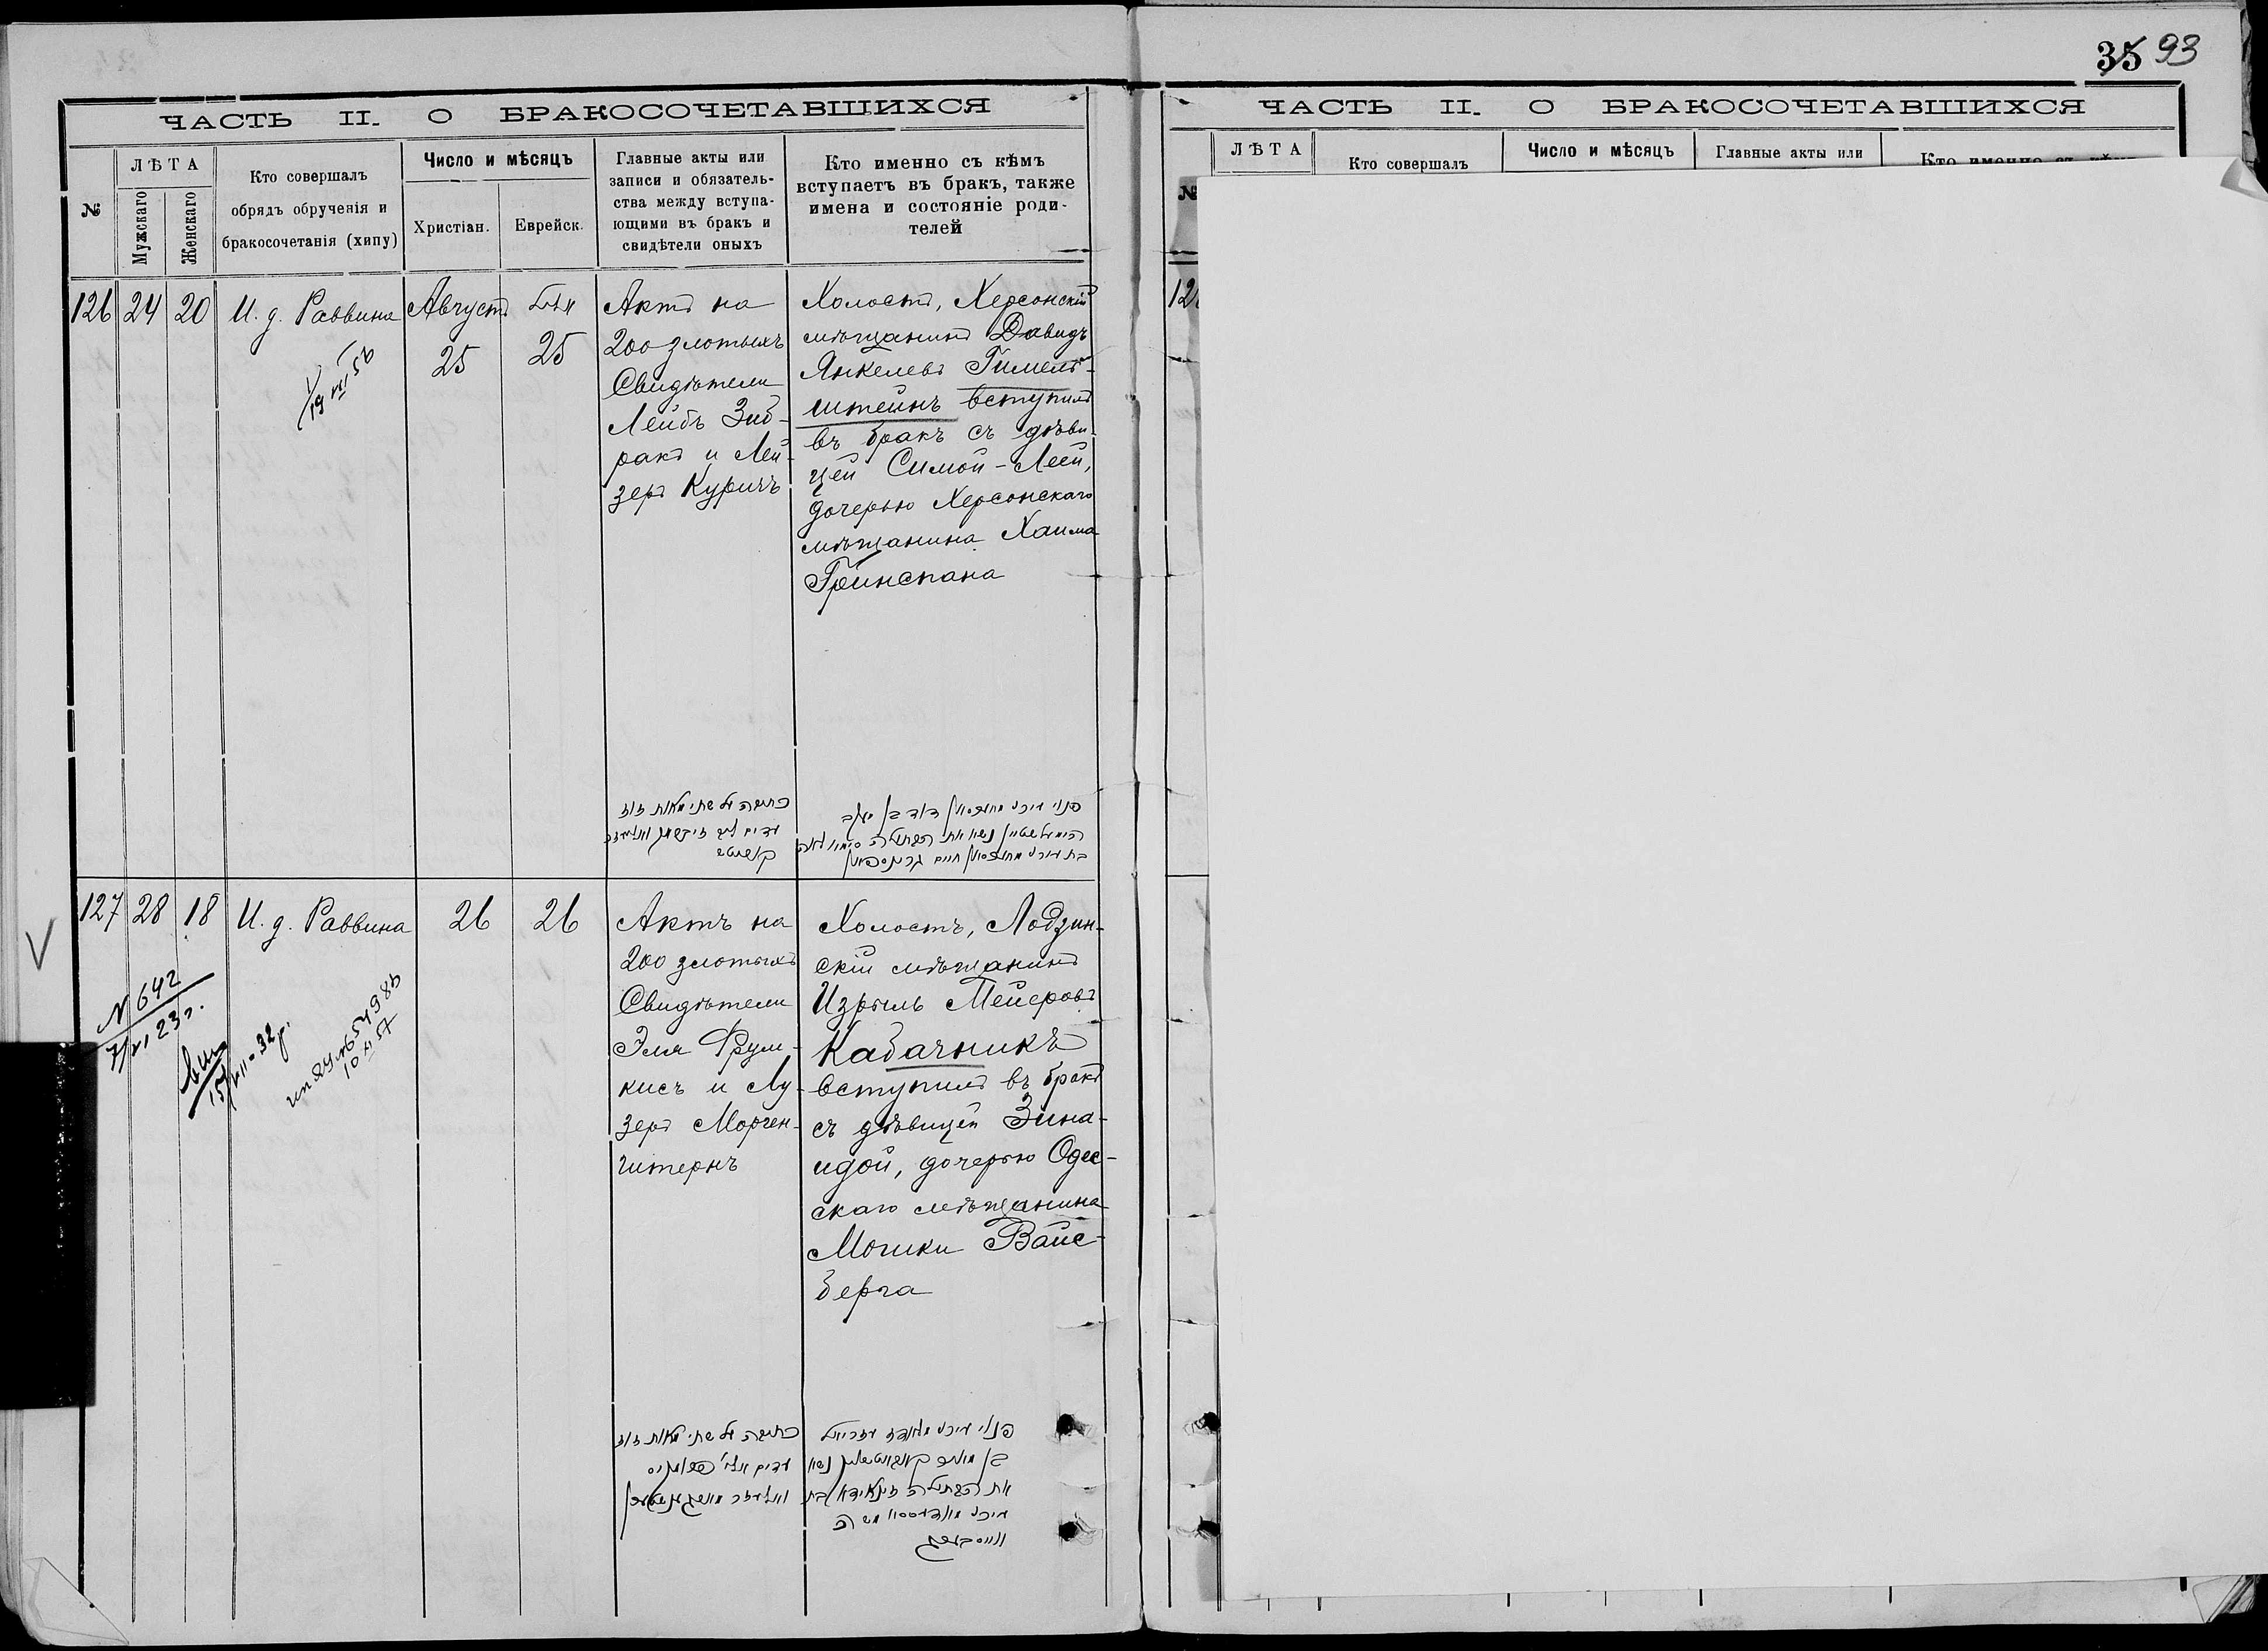 35 93
ЧАСТЬ II. О БРАКОСОЧЕТАВШИХСЯ
№
ЛѢТА
Мужскаго
Женскаго
Кто совершалъ
обрядъ обрученія и
бракосочетанія (хипу)
Число и мѣсяцъ
Христіан.
Еврейск.
Главные акты или
записи и обязатель-
ства между вступа-
ющими въ бракъ и
свидѣтели оныхъ
Кто именно съ кѣмъ
вступаетъ въ бракъ, также
имена и состояніе роди-
телей
126
24
20
И. д. Раввина
Августъ
25
25
Актъ на
200 злотыхъ
Свидѣтели
Лейбъ Зиб-
ракъ и Лей-
зеръ Куричъ
Холостъ, Херсонскій
мѣщанинъ Давидъ
Янкелевъ Гимель-
штейнъ вступилъ
въ бракъ съ дѣви-
цей Симой-Леей,
дочерью Херсонскаго
мѣщанина Хаима
Гринспана
כתובה על שתי מאות זוז
דוד בן יעקב
127
28
18
И. д. Раввина
26
26
Актъ на
200 злотыхъ
Свидѣтели
Эля Фрум-
кисъ и Лу-
зеръ Морген-
штернъ
Холостъ, Лодзин-
скій мѣщанинъ
Изрыль Мейеровъ
Кабачникъ
вступилъ въ бракъ
съ дѣвицей Зина-
идой, дочерью Одес-
скаго мѣщанина
Мошки Вайс-
берга
N 642
כתובה על שתי מאות זוז
ЧАСТЬ II. О БРАКОСОЧЕТАВШИХСЯ
ЛѢТА
Кто совершалъ
Число и мѣсяцъ
Главные акты или
Кто именно съ
№